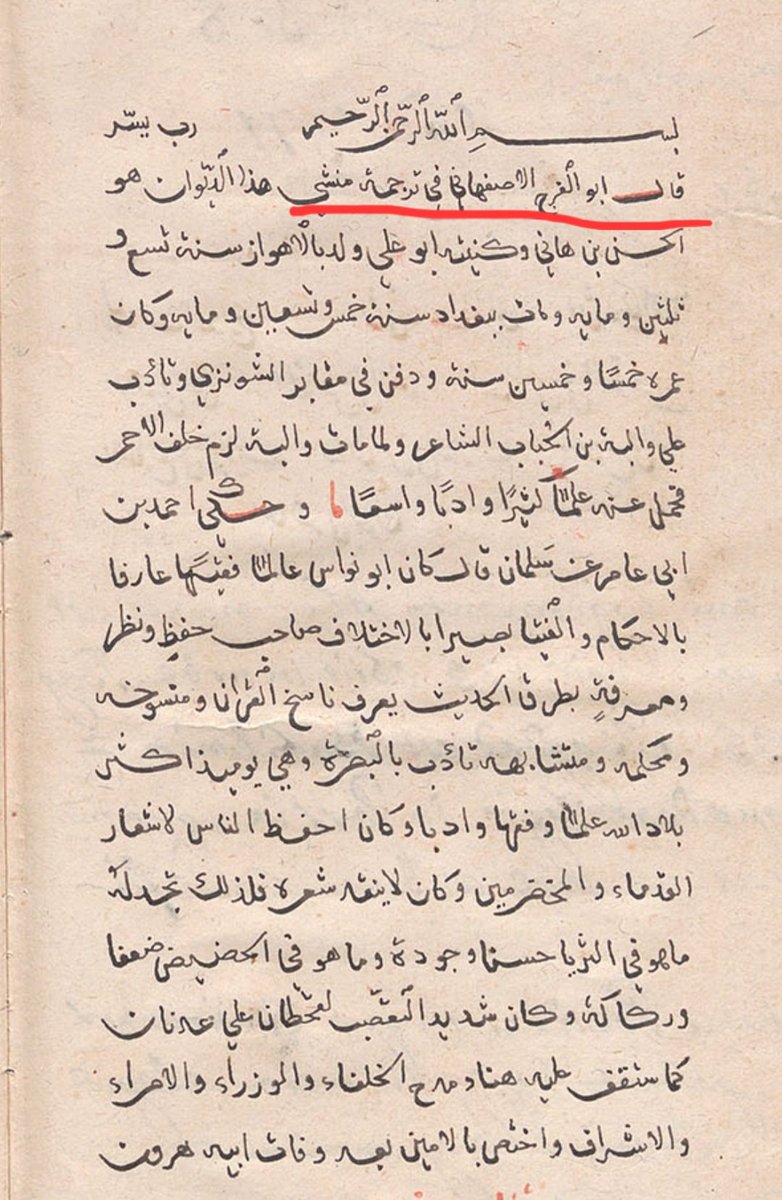 بسم الله الرحمن الرحيم رب يسر
قال ابو الفرج الاصفهاني في ترجمة منشي هذا الديوان هو
الحسن بن هاني وكنيته ابو علي ولد بالاهواز سنة تسع و
ثلثين ومايه ومات ببغداد سنة خمس وتسعين ومايه وكان
عمره خمسًا وخمسين سنة ودفن في مقابر الشونزي وتأدب
علي والبة بن الحباب الشاعر ولما مات والبة لزم خلف الاحمر
فحمل عنه علمًا كثيرًا وادبًا واسعًا وحكي احمد بن
ابي عامر عن سلمان قال كان ابو نواس عالمًا فقيهًا عارفا
بالاحكام والفتيا بصيرا بالاختلاف صاحب حفظٍ ونظر
ومعرفةٍ بطرق الحديث يعرف ناسخ القرآن ومنسوخه
ومحكمه ومتشابهه تأدب بالبصرة وهي يوميذ اكثر
بلاد الله علمًا وفقها وادبا وكان احفظ الناس لاشعار
القدماء والمخضرمين وكان لا ينقد شعره فلذلك تجد له
ما هو في الثريا حسنا وجودة وما هو في الحضيض ضعفا
وركاكة وكان شديد التعصب لقحطان علي عدنان
كما ستقف عليه هنا ومدح الخلفاء والوزراء والامراء
والاشراف واختص بالامين بعد وفات ابيه هرون